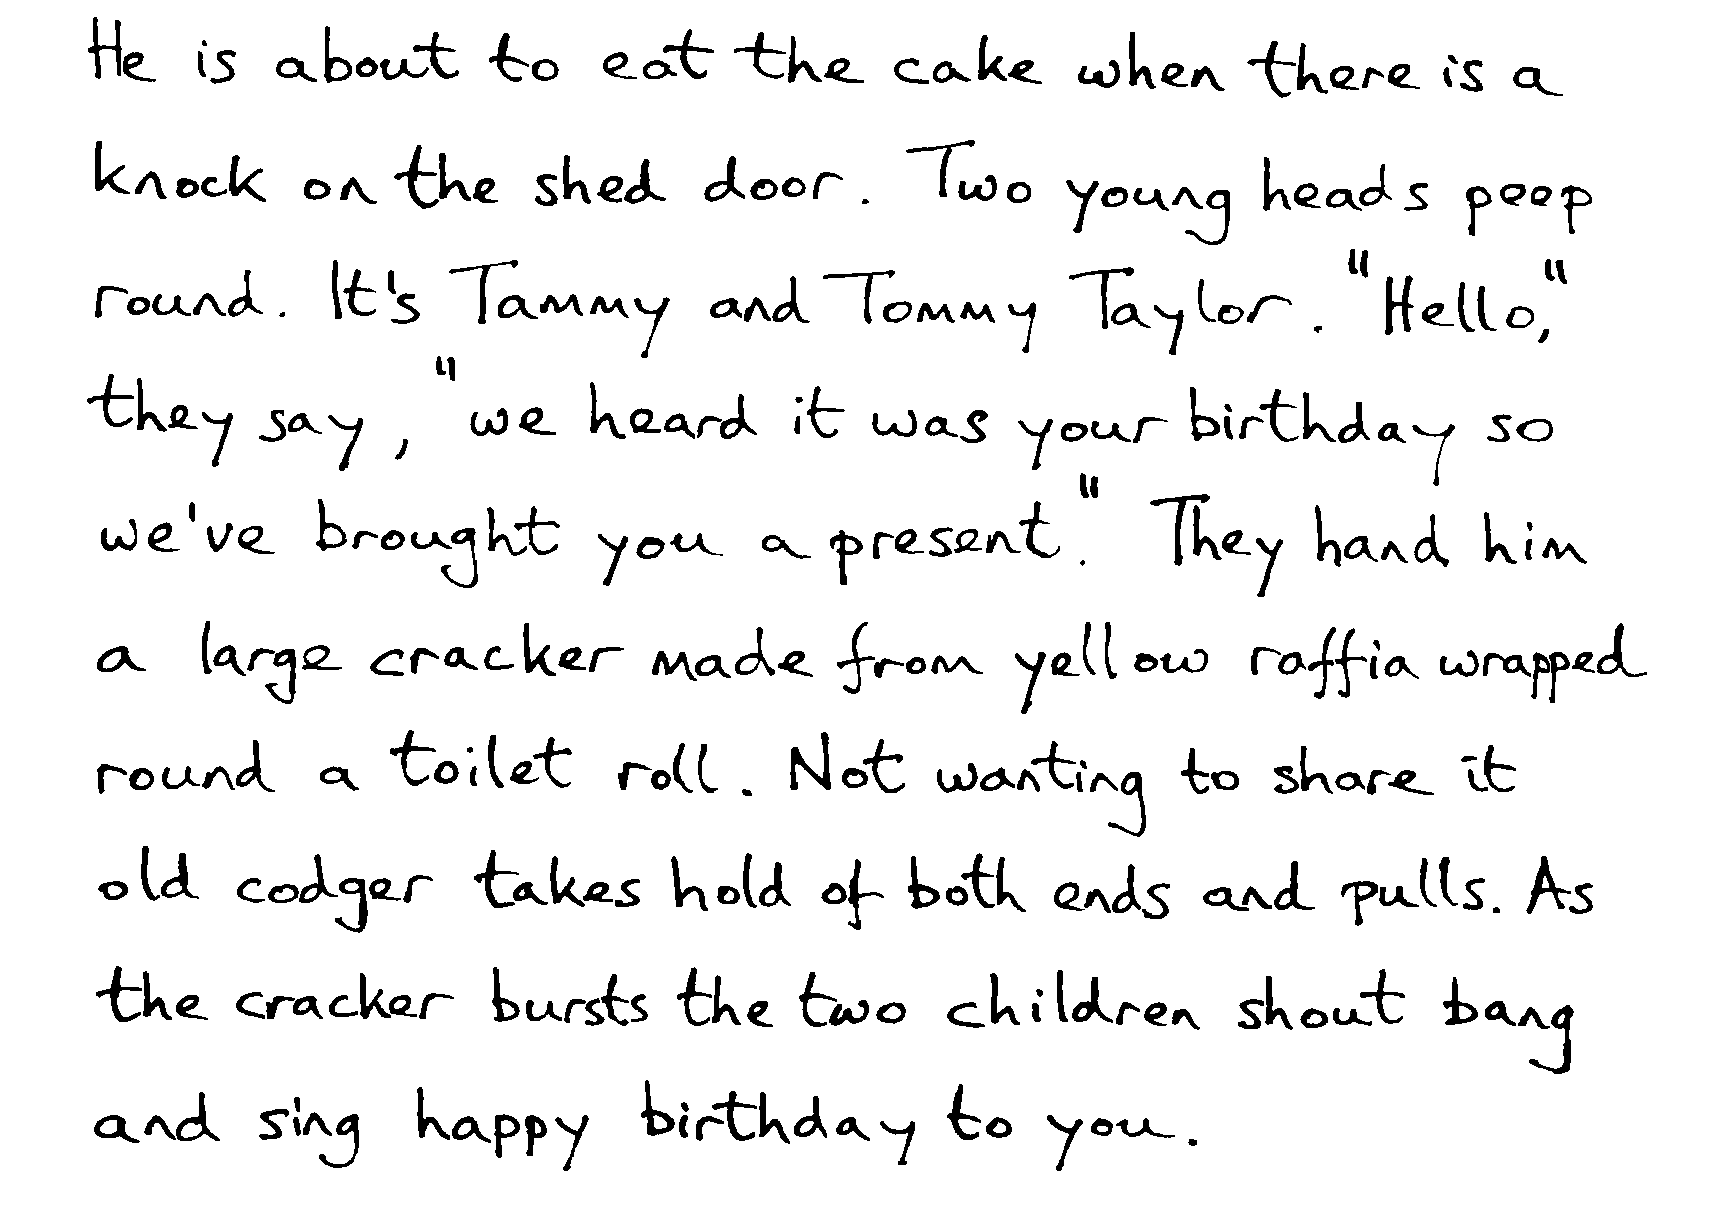 He is about to eat the cake when there is a
knock on the shed door. Two young heads peep
round. It's Tammy and Tommy Taylor. "Hello,"
they say, "we heard it was your birthday so
we've brought you a present." They hand him
a large cracker made from yellow raffia wrapped
round a toilet roll. Not wanting to share it
old codger takes hold of both ends and pulls. As
the cracker bursts the two children shout bang
and sing happy birthday to you.